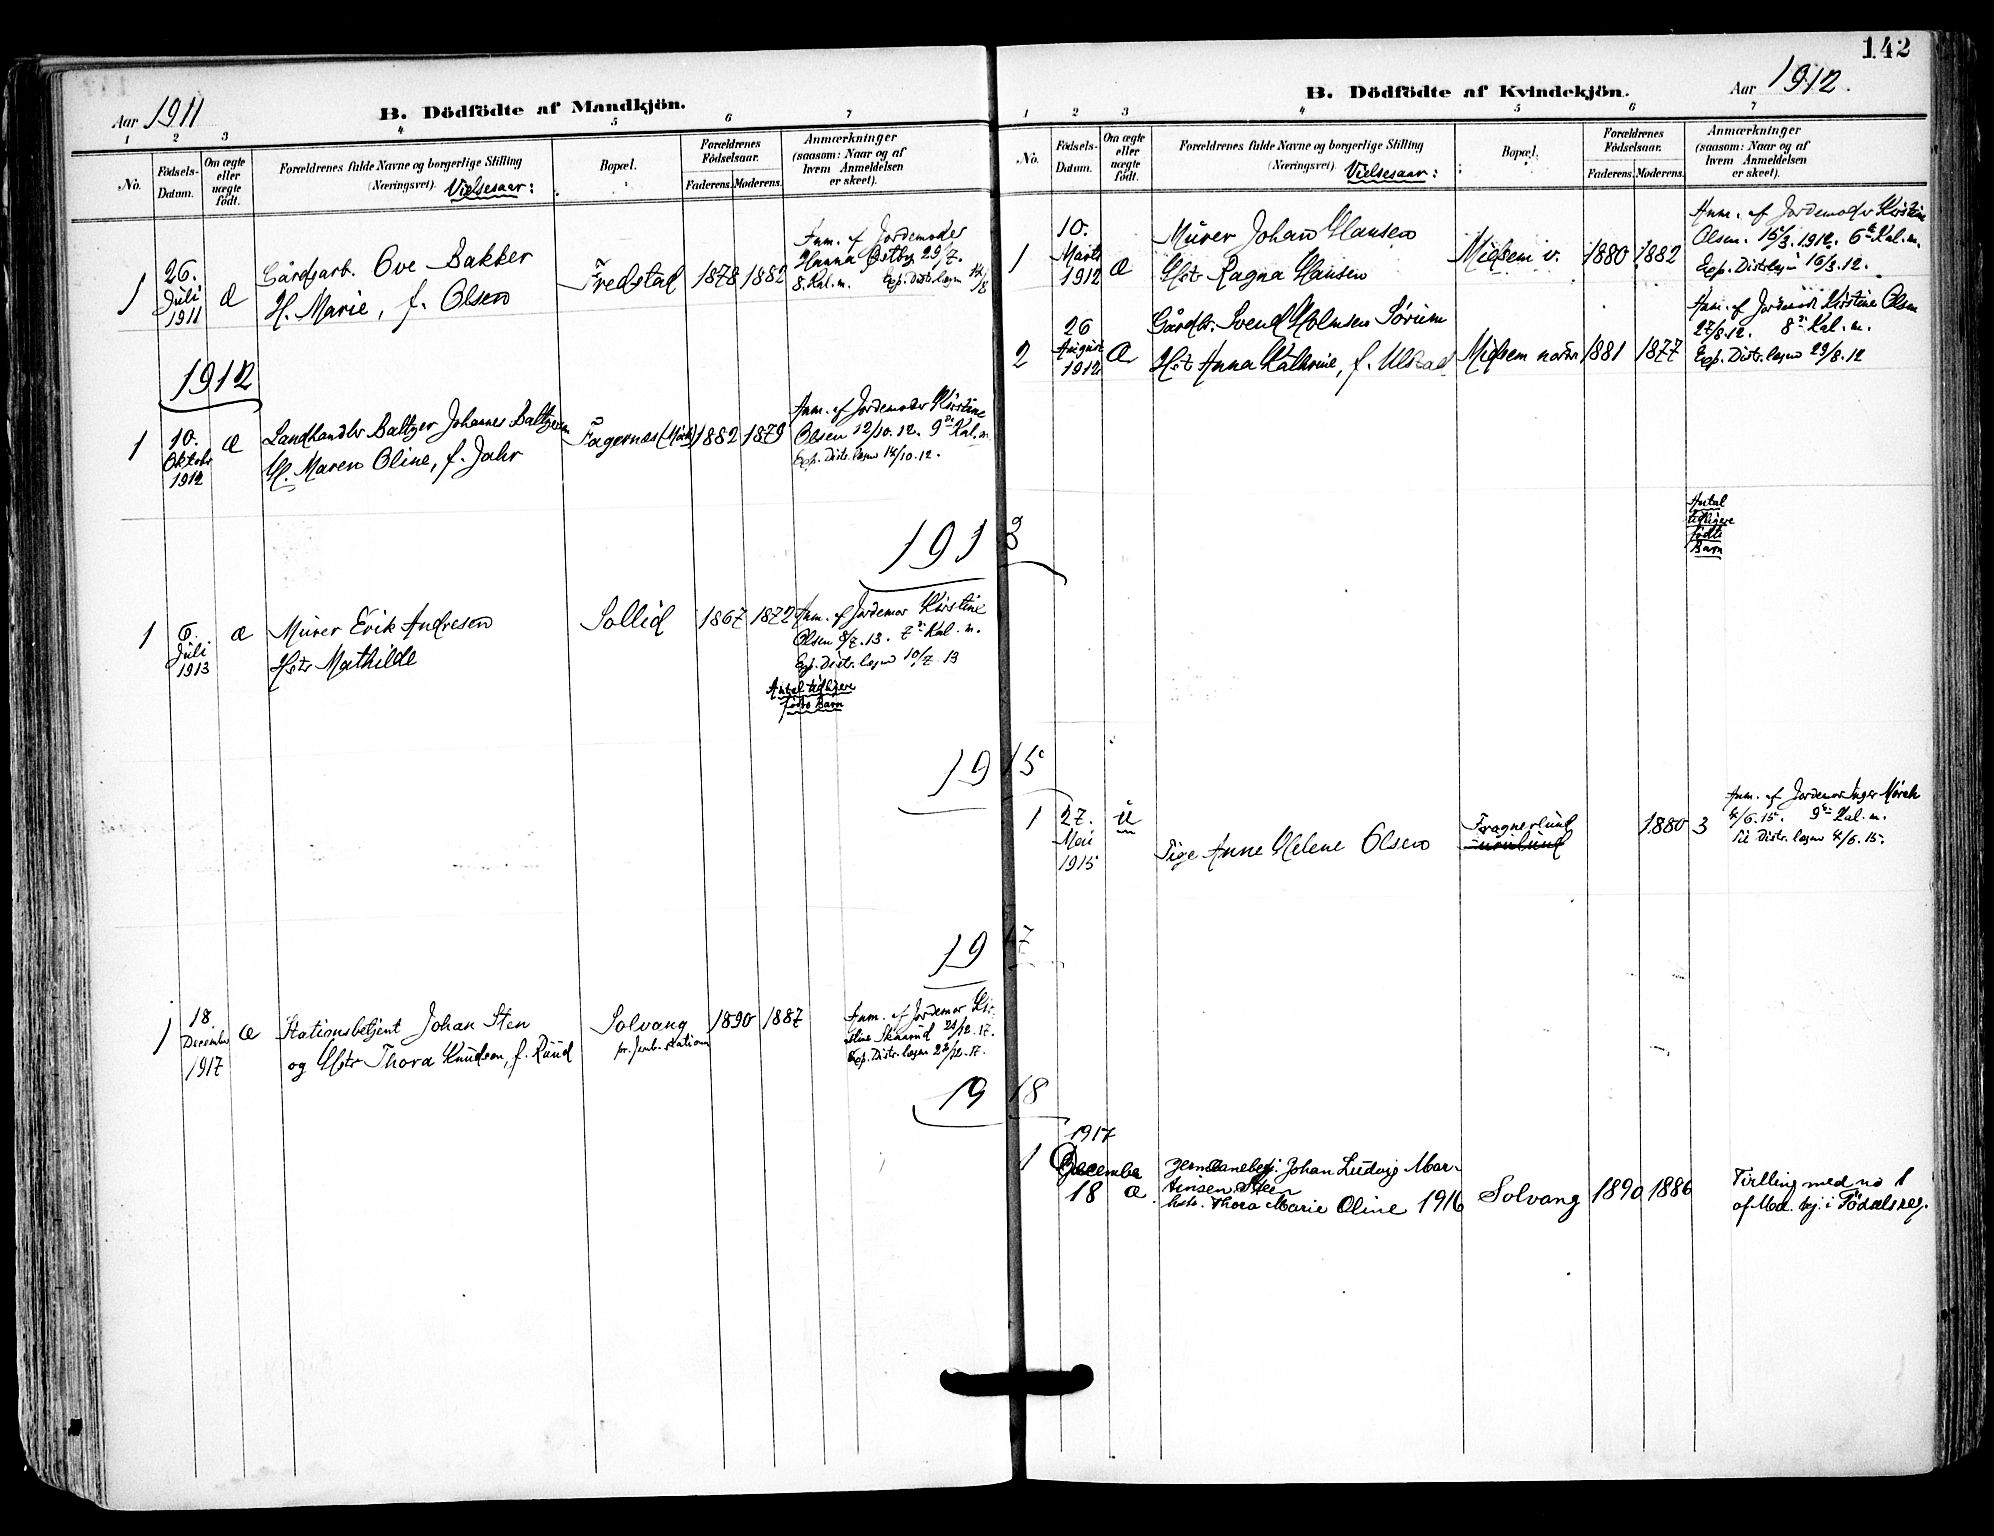 Aar 1911
B. Dödfödte af Mandkjön.
1 2 3 4 5 6 7
No.
Födsels-
Datum.
Om ægte
eller
uægte
födt.
Forældrenes fulde Navne og borgerlige Stilling
(Næringsvei). Vielsesaar:
Bopæl.
Forældrenes
Födselsaar.
Faderens. Moderens.
Anmærkninger
(saasom: Naar og af
hvem Anmeldelsen
er skeet).
1
26.
Juli
1911
Æ
Gårdsarb. Ove Bakker
H. Marie, f. Olsen
Fredstad
1878 1882
Anm. af Jordemoder
Hanna Østby 29/7.
8. Kal. m. Exp. Distr. lægen
1912
1
10.
Oktobr
1912
Æ
Landhandler Baltzer Johannes Baltzersen
H. Maren Oline, f. Jahr
Fagernæs
1882 1879
Anm. af Jordemoder Kirstine
Olsen 12/10. 12. 9de Kal. m.
Exp. Distr. lægen 14/10. 12.
1913
1
6.
Juli
1913
æ
Murer Erik Andresen
Hstr Mathilde
Sollid
1867 1872
Anm. af Jordemor Kirstine
Olsen 8/7. 13. 7de Kal. m.
Exp. Distr. lægen 10/7 13
Antal tidligere
fødte Barn
1915
1917
1
18
December
1917
æ
Stationsbetjent Johan Sten
og Hstr Thora Knudsen, f. Ruud
Solvang
pr. Jernb. station
1890 1887
Anm. af Jordemor Kir-
stine Skaarud 20/12. 17.
Exp. Distr. lægen 22/12. 17.
1918
142
B. Dödfödte af Kvindekjön.
Aar 1912.
1 2 3 4 5 6 7
No.
Födsels-
Datum.
Om ægte
eller
uægte
födt.
Forældrenes fulde Navne og borgerlige Stilling
(Næringsvei). Vielsesaar:
Bopæl.
Forældrenes
Födselsaar.
Faderens. Moderens.
Anmærkninger
(saasom: Naar og af
hvem Anmeldelsen
er skeet).
1
10.
Marts
1912
Æ
Murer Johan Hansen
Hst. Ragna Hansen
v.
1880 1882
Anm. af Jordemoder Kirstine
Olsen. 15/3. 1912. 6te Kal. m.
Exp. Distr. lægen 16/3. 12.
2
26
August
1912
Æ
Gårdbr. Svend Holmsen Sørum
Hst Anna Kathrine, f. Ulstad
1881 1877
Anm. af Jordemoder Kirstine Olsen
27/8. 12. 8de Kal. m.
Exp. Distr. lægen 29/8. 12
Antal
tidligere
fødte
Barn
1
27.
Mai
1915
u
Pige Anne Helene Olsen
Fragnerlund
1880
3
Anm. af Jordemor Inger Mörch
4/6. 15. 9de Kal. m.
Til Distr. lægen 4/6. 15.
1917
1
December
18
æ
Jernbanebetj. Johan Ludvig Mar-
tinsen Sten
hstr. Thora Marie Oline 1916
Solvang
1890 1886
Tvilling med no 1
af Mandkj. i Födselsreg.